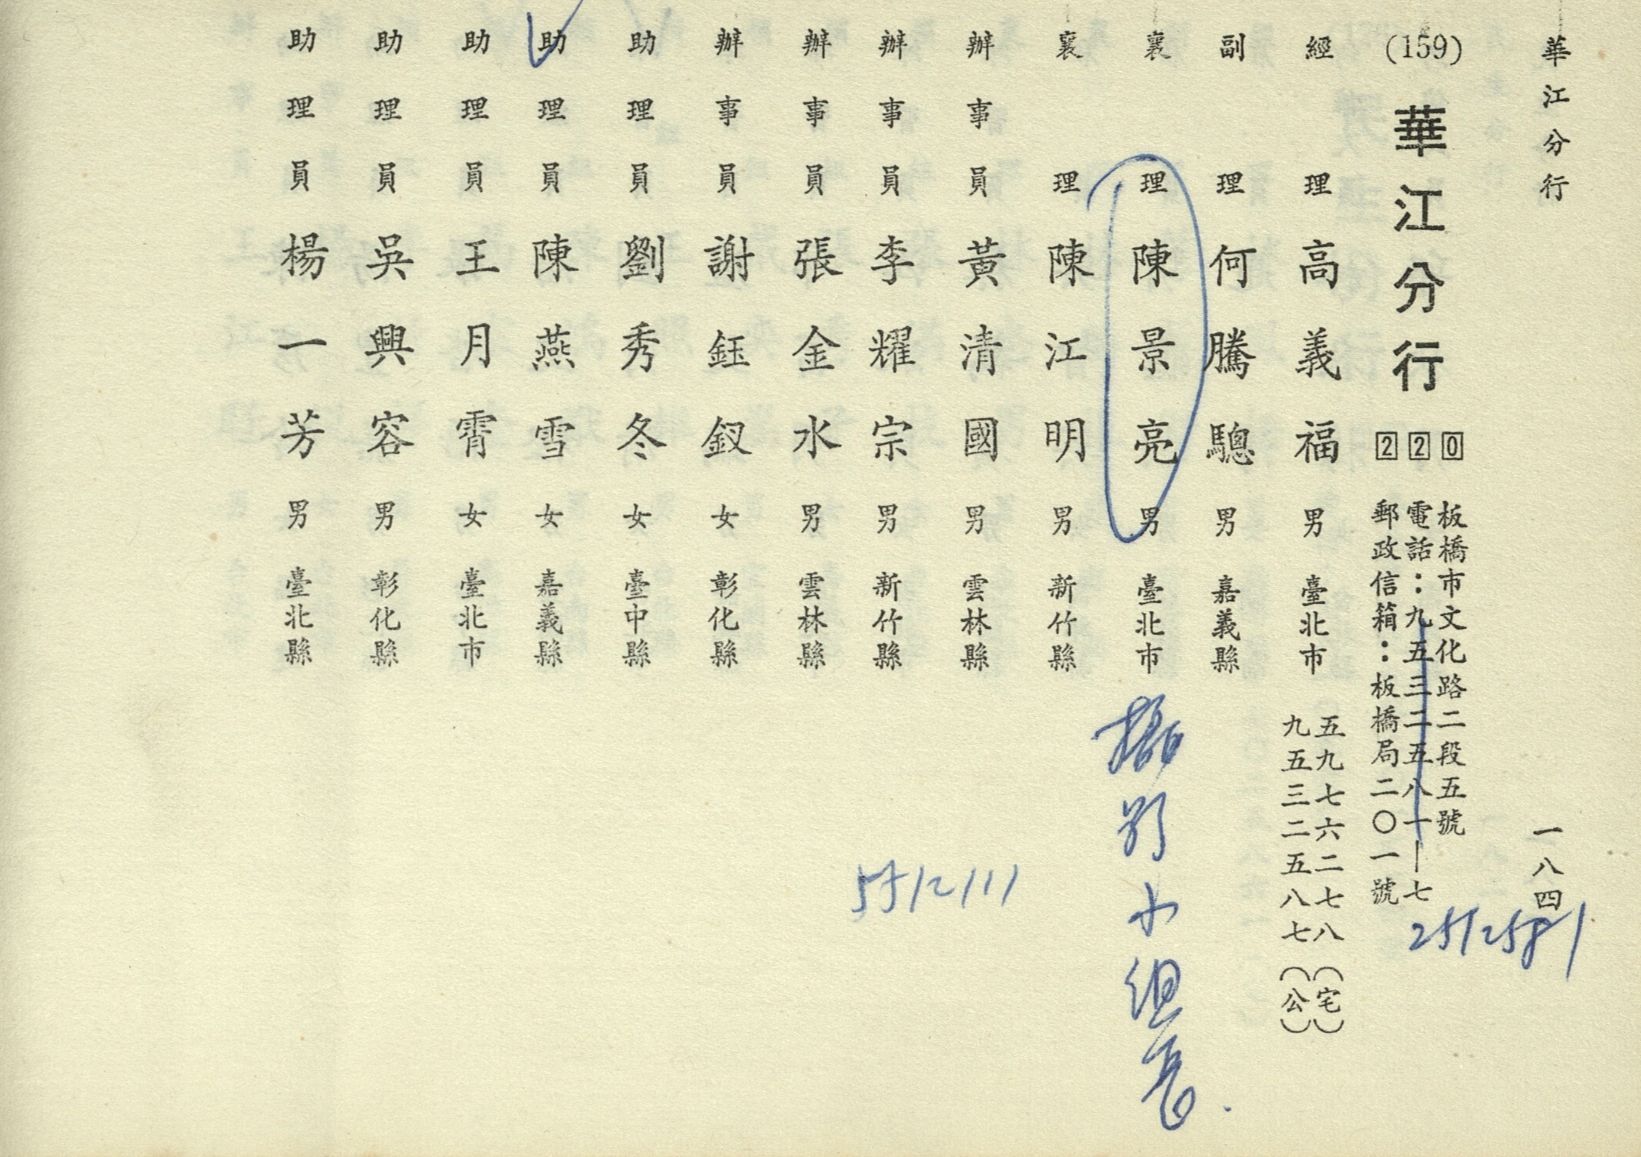 華江分行
一八四
(159)
華江分行
220
板橋市文化路二段五號
電話：九五三二五八一—七
郵政信箱：板橋局二〇一號
2512581
經理 高義福 男 臺北市
五九七六二七八（宅）
九五三二五八七（公）
副理 何騰驄 男 嘉義縣
襄理 陳景亮 男 臺北市
小組長
襄理 陳江明 男 新竹縣
辦事員 黃清國 男 雲林縣
辦事員 李耀宗 男 新竹縣
辦事員 張金水 男 雲林縣
辦事員 謝鈺釵 女 彰化縣
助理員 劉秀冬 女 臺中縣
助理員 陳燕雪 女 嘉義縣
助理員 王月霄 女 臺北市
助理員 吳興容 男 彰化縣
助理員 楊一芳 男 臺北縣